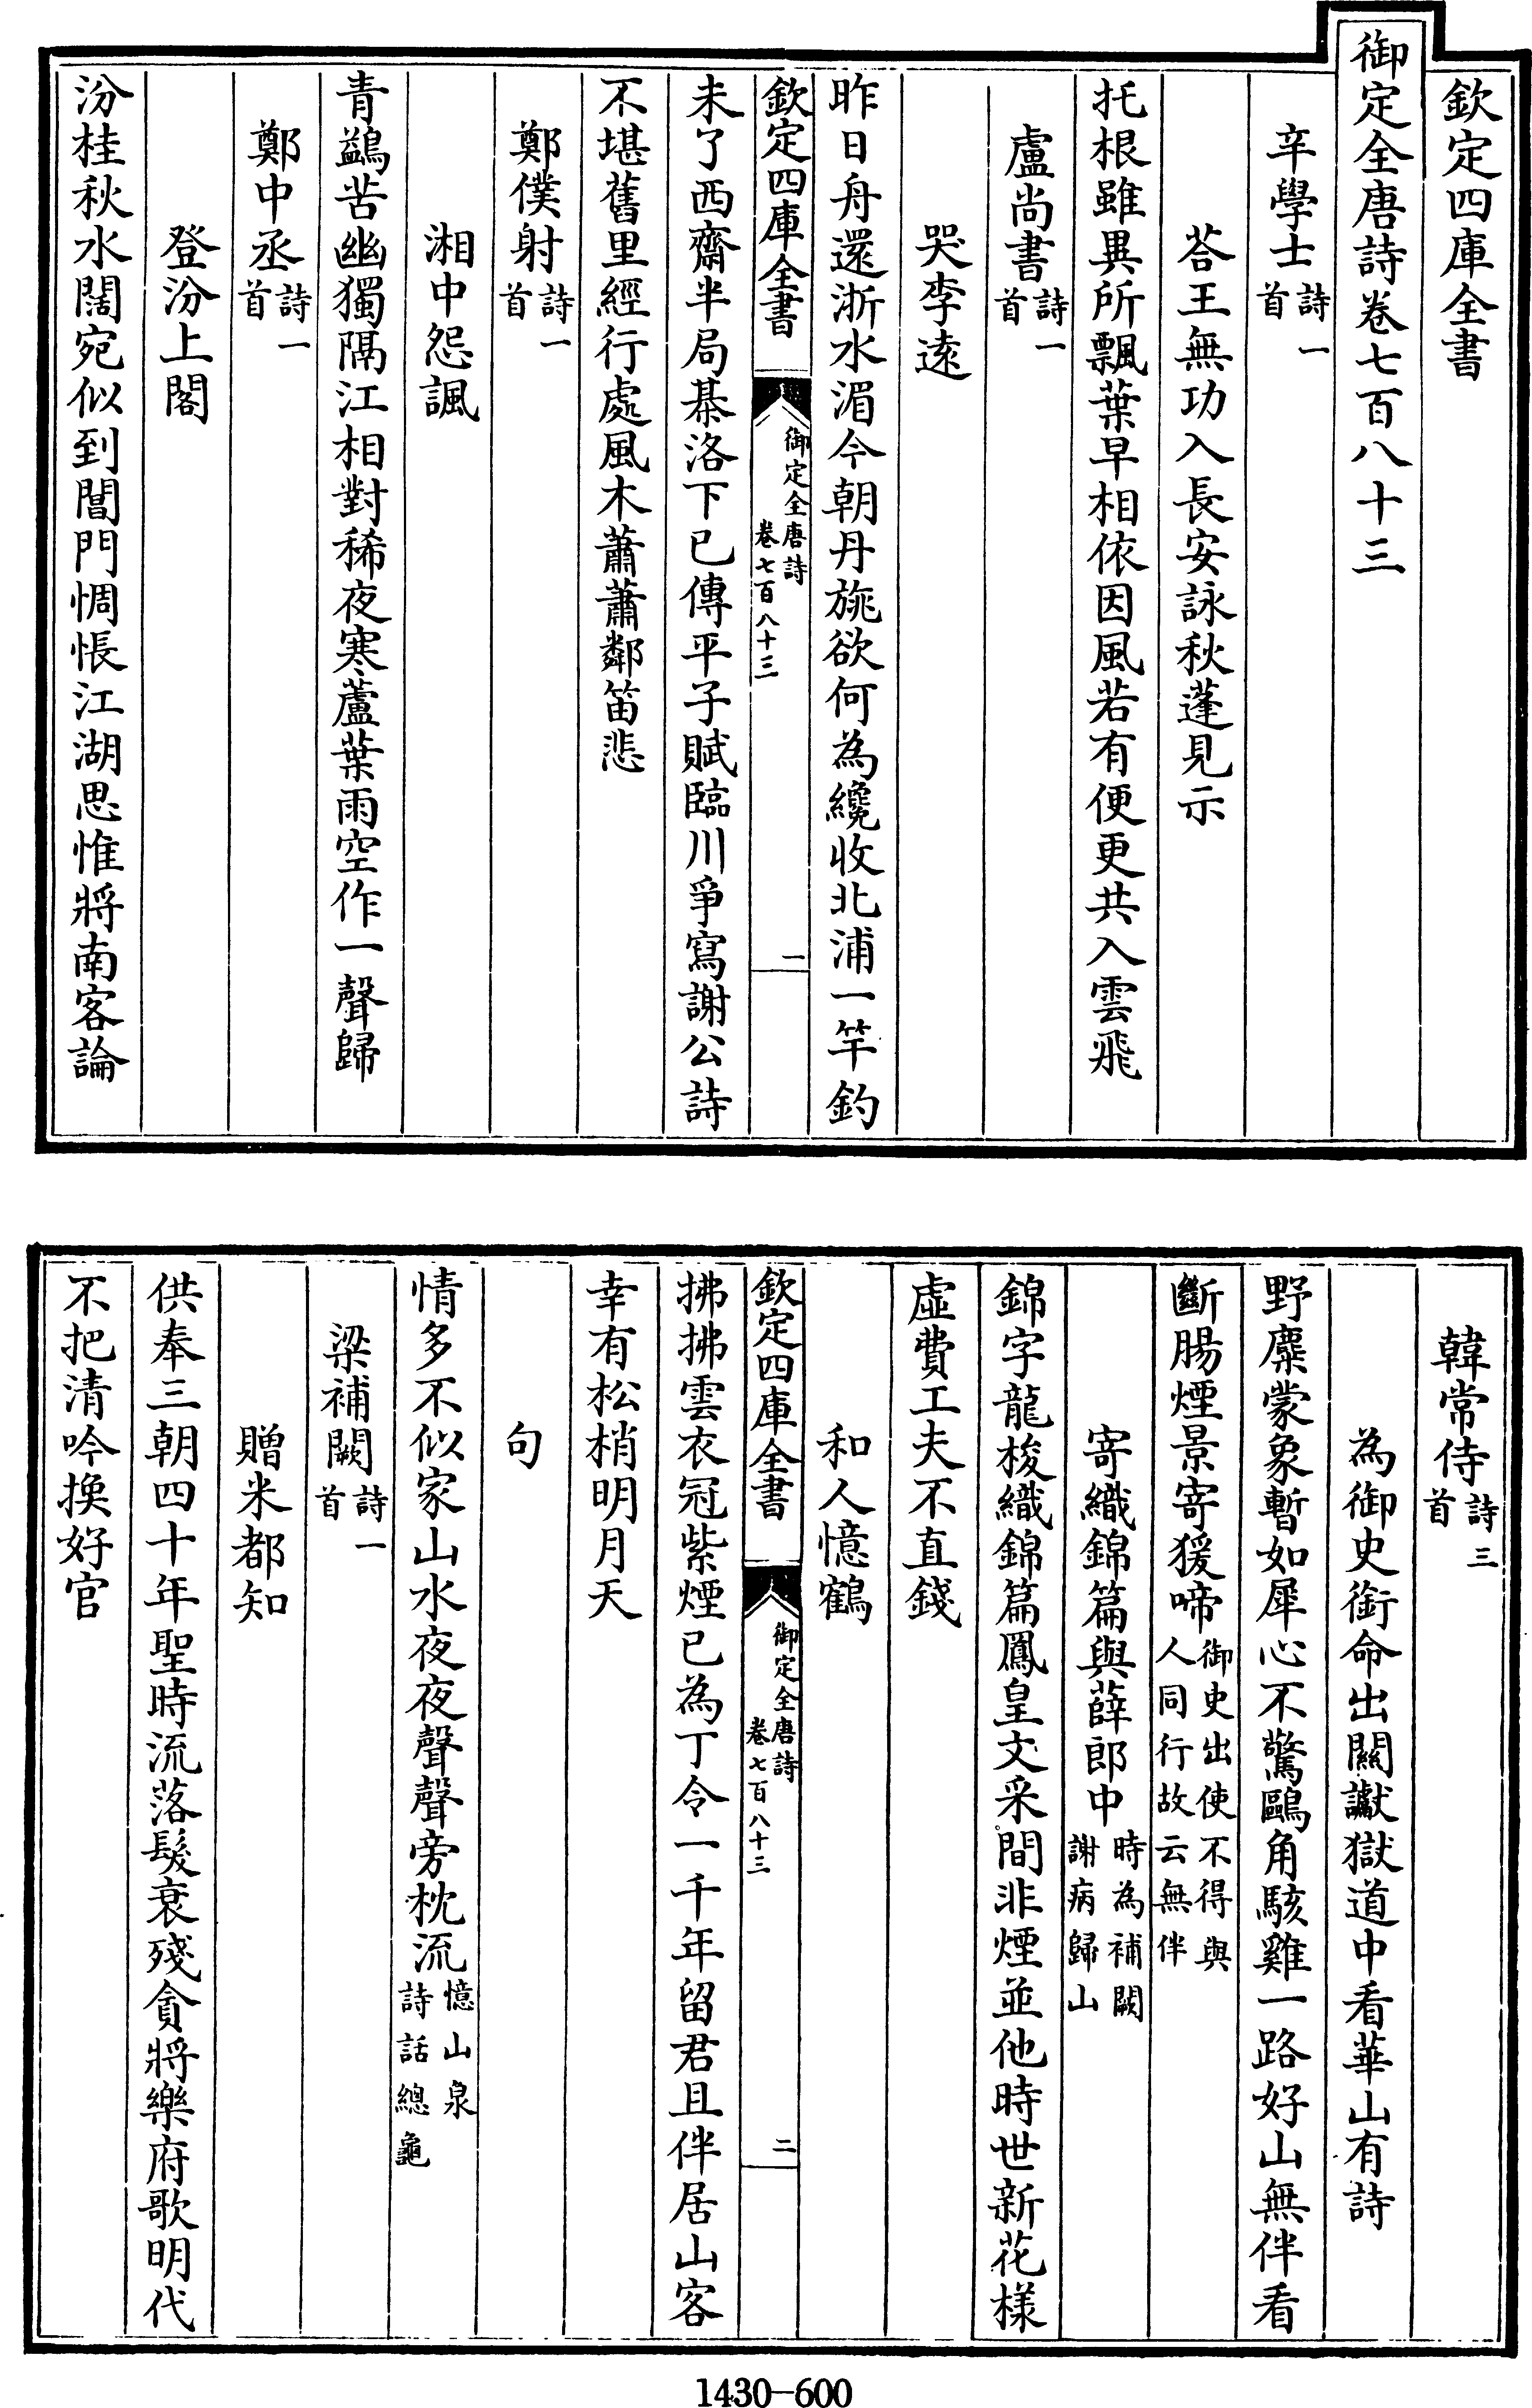 欽定四庫全書
御定全唐詩卷七百八十三
辛學士詩一首
荅王無功入長安詠秋蓬見示
托根雖異所飄葉早相依因風若有便更共入雲飛
盧尚書詩一首
哭李遠
昨日舟還浙水湄今朝丹旐欲何為纔收北浦一竿釣
欽定四庫全書
御定全唐詩
卷七百八十三
一
未了西齋半局棊洛下已傳平子賦臨川爭寫謝公詩
不堪舊里經行處風木蕭蕭鄰笛悲
鄭僕射詩一首
湘中怨諷
青鷁苦幽獨隔江相對稀夜寒蘆葉雨空作一聲歸
鄭中丞詩一首
登汾上閣
汾桂秋水闊宛似到閶門惆悵江湖思惟將南客論
韓常侍詩三首
為御史銜命出關讞獄道中看華山有詩
野麋蒙象暫如犀心不驚鷗角駭雞一路好山無伴看
斷腸煙景寄猨啼御史出使不得與人同行故云無伴
寄織錦篇與薛郎中時為補闕謝病歸山
錦字龍梭織錦篇鳳皇文采間非煙並他時世新花樣
虛費工夫不直錢
和人憶鶴
欽定四庫全書
御定全唐詩
卷七百八十三
二
拂拂雲衣冠紫煙已為丁令一千年留君且伴居山客
幸有松梢明月天
句
情多不似家山水夜夜聲聲旁枕流憶山泉詩話總龜
梁補闕詩一首
贈米都知
供奉三朝四十年聖時流落髮衰殘貪將樂府歌明代
不把清吟換好官
1430-600